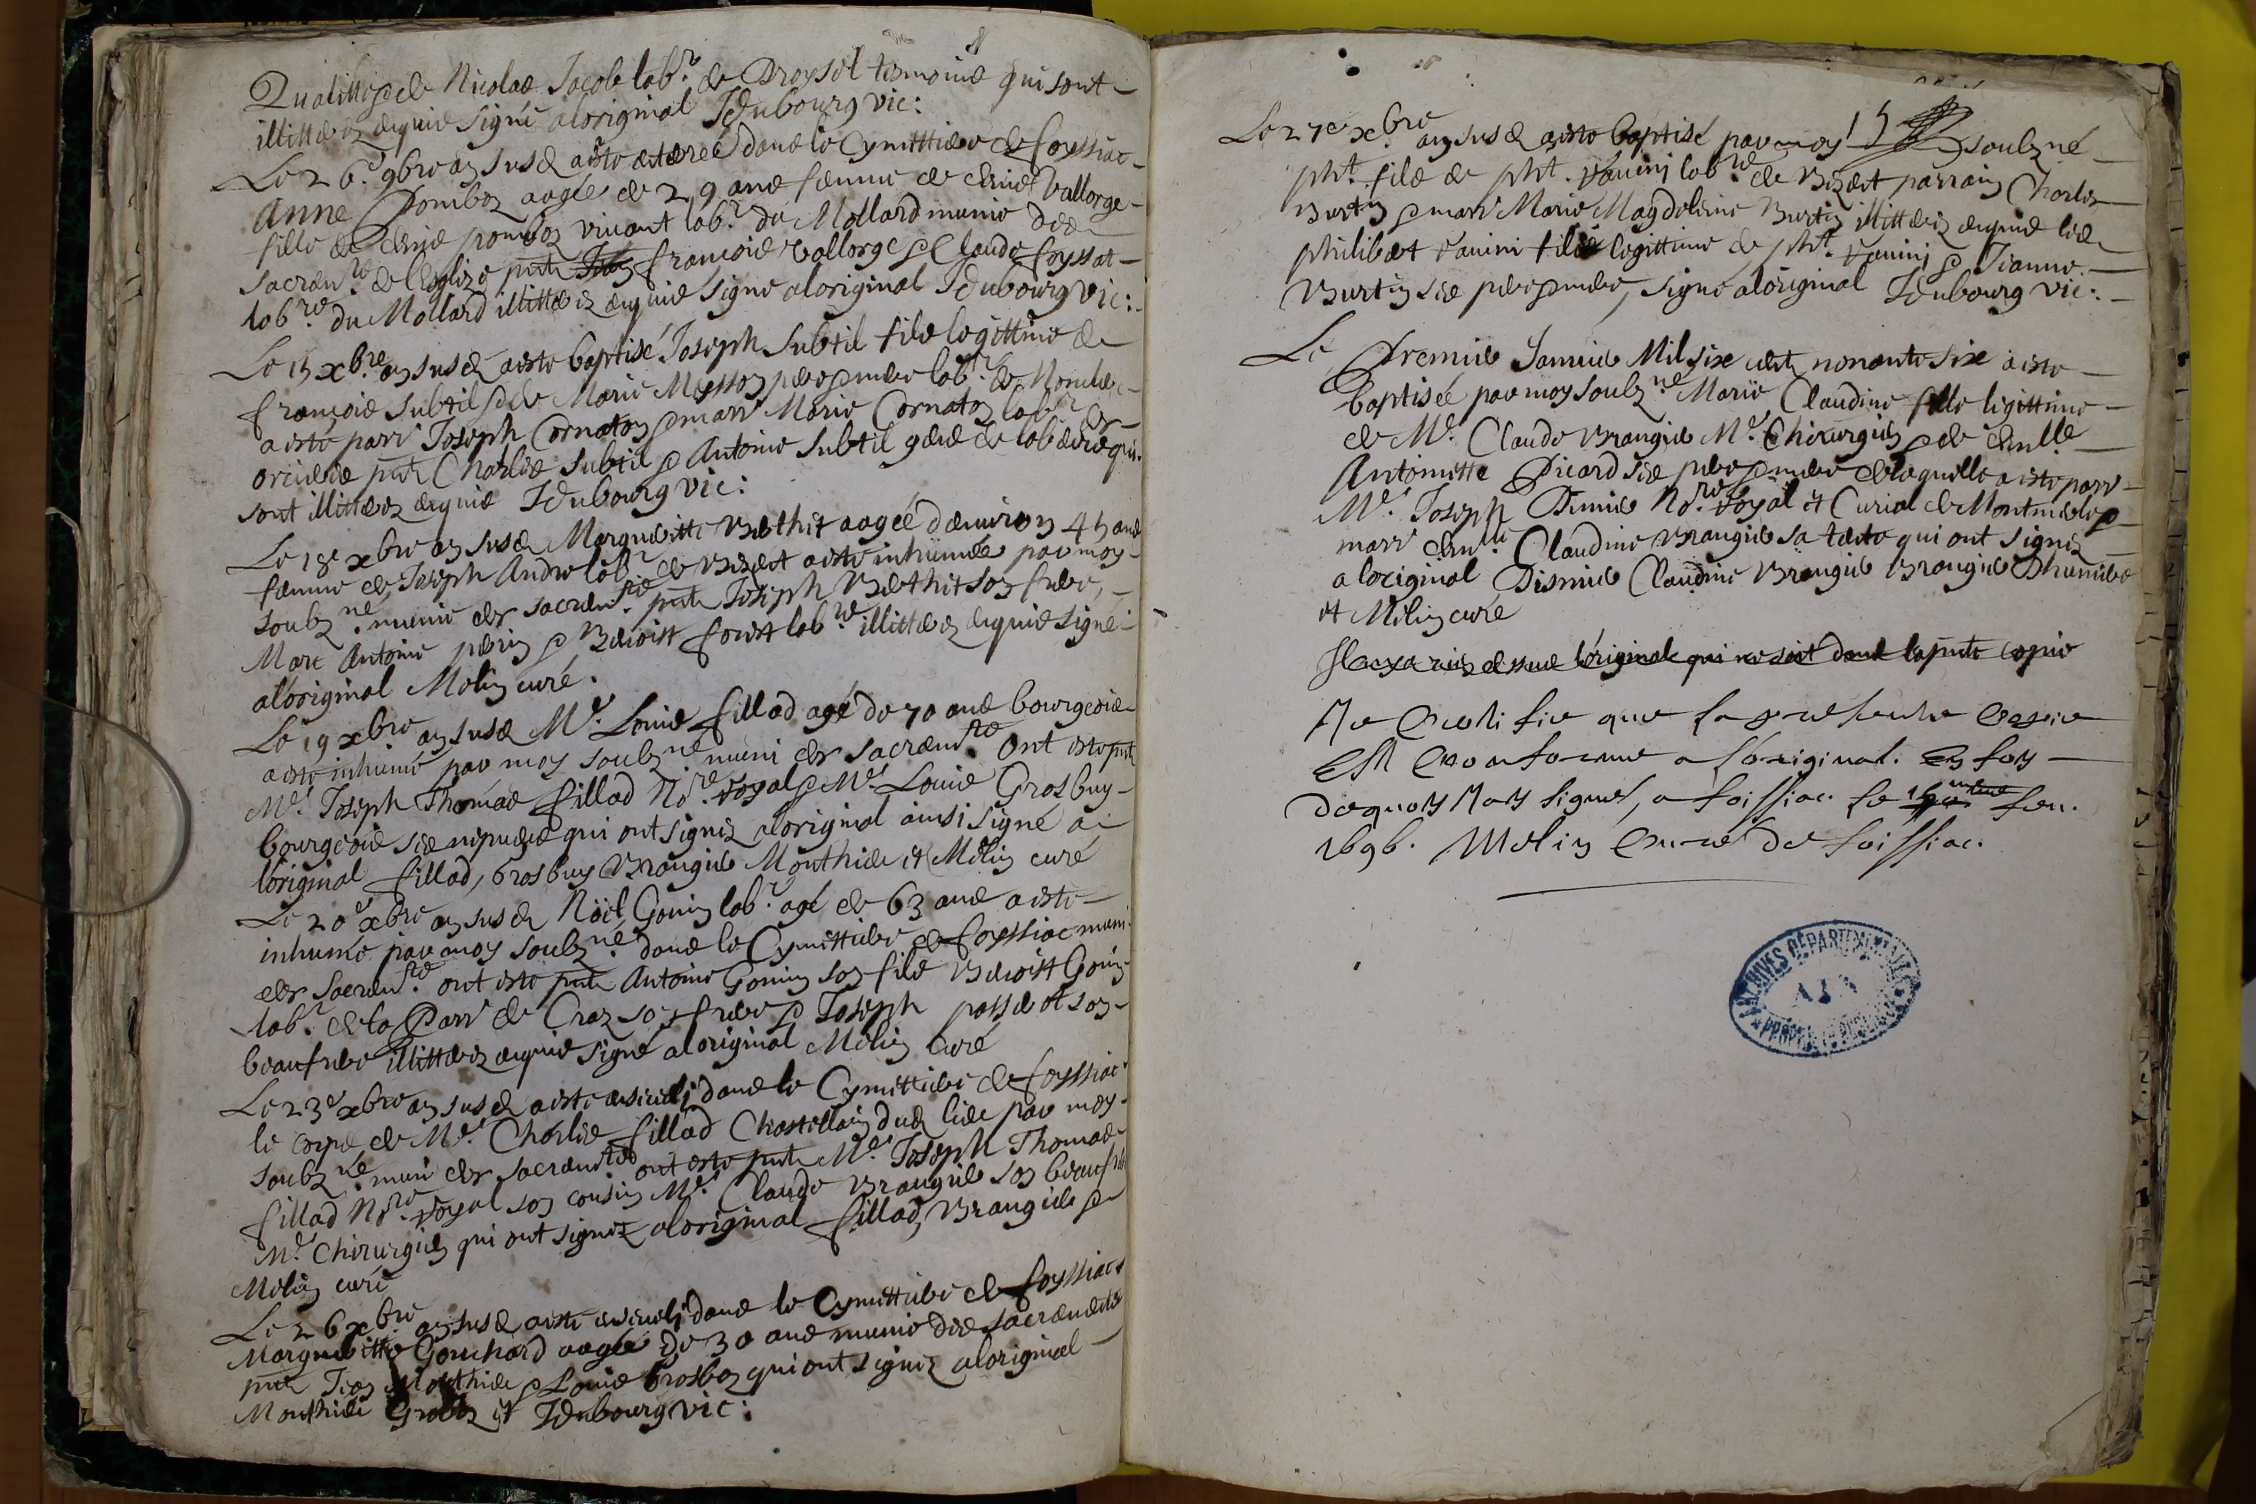 Qualitté & de Nicolas Jacob lab.r de Droysel tesmoins qui sont
illitterez enquis signé a loriginal J Dubourg vic:
Le 26.e 9bre an susd a esté enterrée dans le Cymittiere de foyssiac
Anne Pomboz aagée de 29 ans femme de Denis Vallorge
fille de Denis pomboz vivant lab.r du Mollard munie des
sacrem.te de l'esglize pnts françois Vallorge & Claude foyssat
lab.re du Mollard illitterez enquis signé a loriginal J Dubourg vic:
Le 15 xbre an susd a esté baptisé Joseph Subtil fils legittime de
françois Subtil & de Marie Musson pere & mere lab.re de
a esté parr Joseph Cornaton & marr Marie Cornaton lab.r de
pnts Charles Subtil & Antoine Subtil
sont illitterez enquis J Dubourg vic:
Le 18e xbre an susd Margueritte Bethit aagée d'environ 45 ans
femme de Joseph Andre lab.r de Bezet a esté inhumée par moy
soubz.né munie des sacrem.te pnts Joseph Bethit son frere,
Marc Antoine perin & Benoist forest lab.re illitterez enquis signé
a loriginal Molin curé.
Le 19 xbre an susd M.e Louis fillod agé de 70 ans bourgeois
a esté inhumé par moy soubz.né muni des sacrem.te ont esté pnts
M.e Joseph Thomas fillod No.re royal & M.e Louis Grosbuy
bourgeois ses nepveux qui ont signez a loriginal ainsi signé a
loriginal fillod, Grosbuy Brangier Monthier et Molin curé
Le 20e xbre an susd Noël Gonin lab.r agé de 63 ans a esté
inhumé par moy soubz.né dans le Cymittiere de foyssiac muni
des sacrem.te ont esté pnts Antoine Gonin son fils Benoist Gonin
lab.r de la parr de Craz son frere & Joseph son
beaufrere illitterez enquis signé a loriginal Molin curé
Le 23e xbre an susd a esté enseveli dans le Cymittiere de foyssiac
le corps de M.e Charles fillod Chastellain dud lieu par moy
soubz.né muni des sacrem.te ont esté pnts M.e Joseph Thomas
fillod No.re royal son cousin M.e Claude Brangier son beaufre
M.e Chirurgien qui ont signez a loriginal fillod, Brangier &
Molin curé
Le 26 xbre an susd a esté enseveli dans le Cymittiere de foyssiac
Margueritte Gouchard aagée de 30 ans munie des sacrements
pnts Jean Monthier & Louis Grosboz qui ont signez a loriginal
Monthier Grosboz et J Dubourg vic:
Le 27e xbre an susd a esté baptisé par moy soubz.né
pht. fils de pht. lab.re de Bezet parrain Charles
Burtin & marr Marie Magdeleine Burtin illitterez enquis led
philibert fils legittime de pht. & Jeanne
Burtin ses pere & mere, signé a loriginal J Dubourg vic:
Le Premier Janvier Mil six cents nonante six a esté
baptisée par moy soubz.né Marie Claudine fille legittime
de M.e Claude Brangier M.e Chirurgien & de dmlle
Antoinette Picard ses pere & mere de laquelle a esté parr
M.e Joseph No.re royal et Curial de Montmerle &
marr dmlle Claudine Brangier sa tante qui ont signez
a loriginal Claudine Brangier Brangier
et Molin curé
Il n'y a rien dessus l'original qui ne soit dans la pnte copie
Je Certifie que la presente Copie
Est Conforme a l'original. En foy
dequoy J'ay signé, a foissiac le feu.
1696. Molin Curé de foissiac.
ARCHIVES DÉPARTEMENTALES
AIN